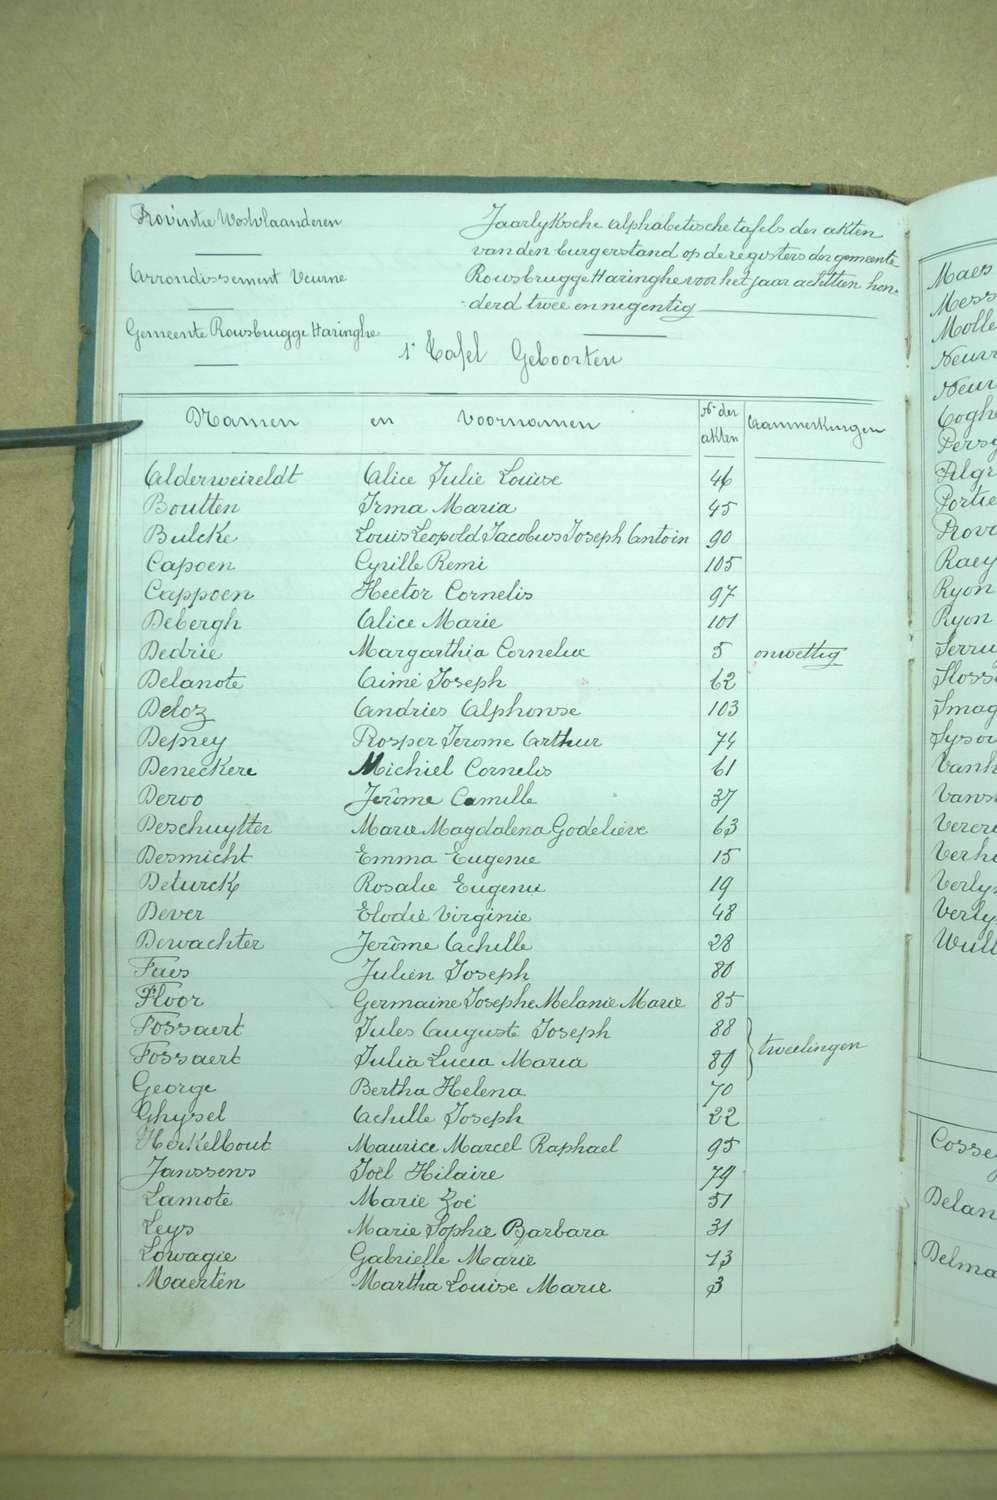 Provintie Westvlaanderen
Arrondissement Veurne
Gemeente Rousbrugge Haringhe
Jaarlyksche alphabetische tafels der akten
van den burgerstand op de registers der gemeente
Rousbrugge Haringhe voor het jaar achttien hon-
-derd twee en negentig
1e Tafel Geboorten
Namen en Voornamen Nr der akten Aanmerkingen
Alderweireldt Alice Julie Louise 46
Boutten Irma Maria 45
Bulcke Louis Leopold Jacobus Joseph Antoin 90
Capoen Cyrille Remi 105
Cappoen Hector Cornelis 97
Debergh Alice Marie 101
Dedrie Margarthia Cornelia 5 onwettig
Delanote Aimé Joseph 62
Deloz Andries Alphonse 103
Deprey Prosper Jerome Arthur 74
Deneckere Michiel Cornelis 61
Deroo Jerôme Camille 37
Deschuytter Marie Magdalena Godelieve 63
Desmicht Emma Eugenie 15
Deturck Rosalie Eugenie 19
Dever Elodie Virginie 48
Dewachter Jerôme Achille 28
Faes Julien Joseph 80
Floor Germaine Josephe Melanie Marie 85
Fossaert Jules Auguste Joseph 88
tweelingen
Fossaert Julia Lucia Maria 89
George Bertha Helena 70
Ghysel Achille Joseph 22
Herkelbout Maurice Marcel Raphael 95
Janssens Joël Hilaire 79
Lamote Marie Zoé 51
Leys Marie Sophie Barbara 31
Lowagie Gabrielle Marie 13
Maerten Martha Louise Marie 3
Maes
Mess
Molle
Neuv
Neuv
Coghe
Persy
Pilgr
Portie
Provo
Raey
Ryon
Ryon
Serru
Smag
Vanh
Vans
Verh
Verly
Verly
Wull
Cosse
Delan
Delma